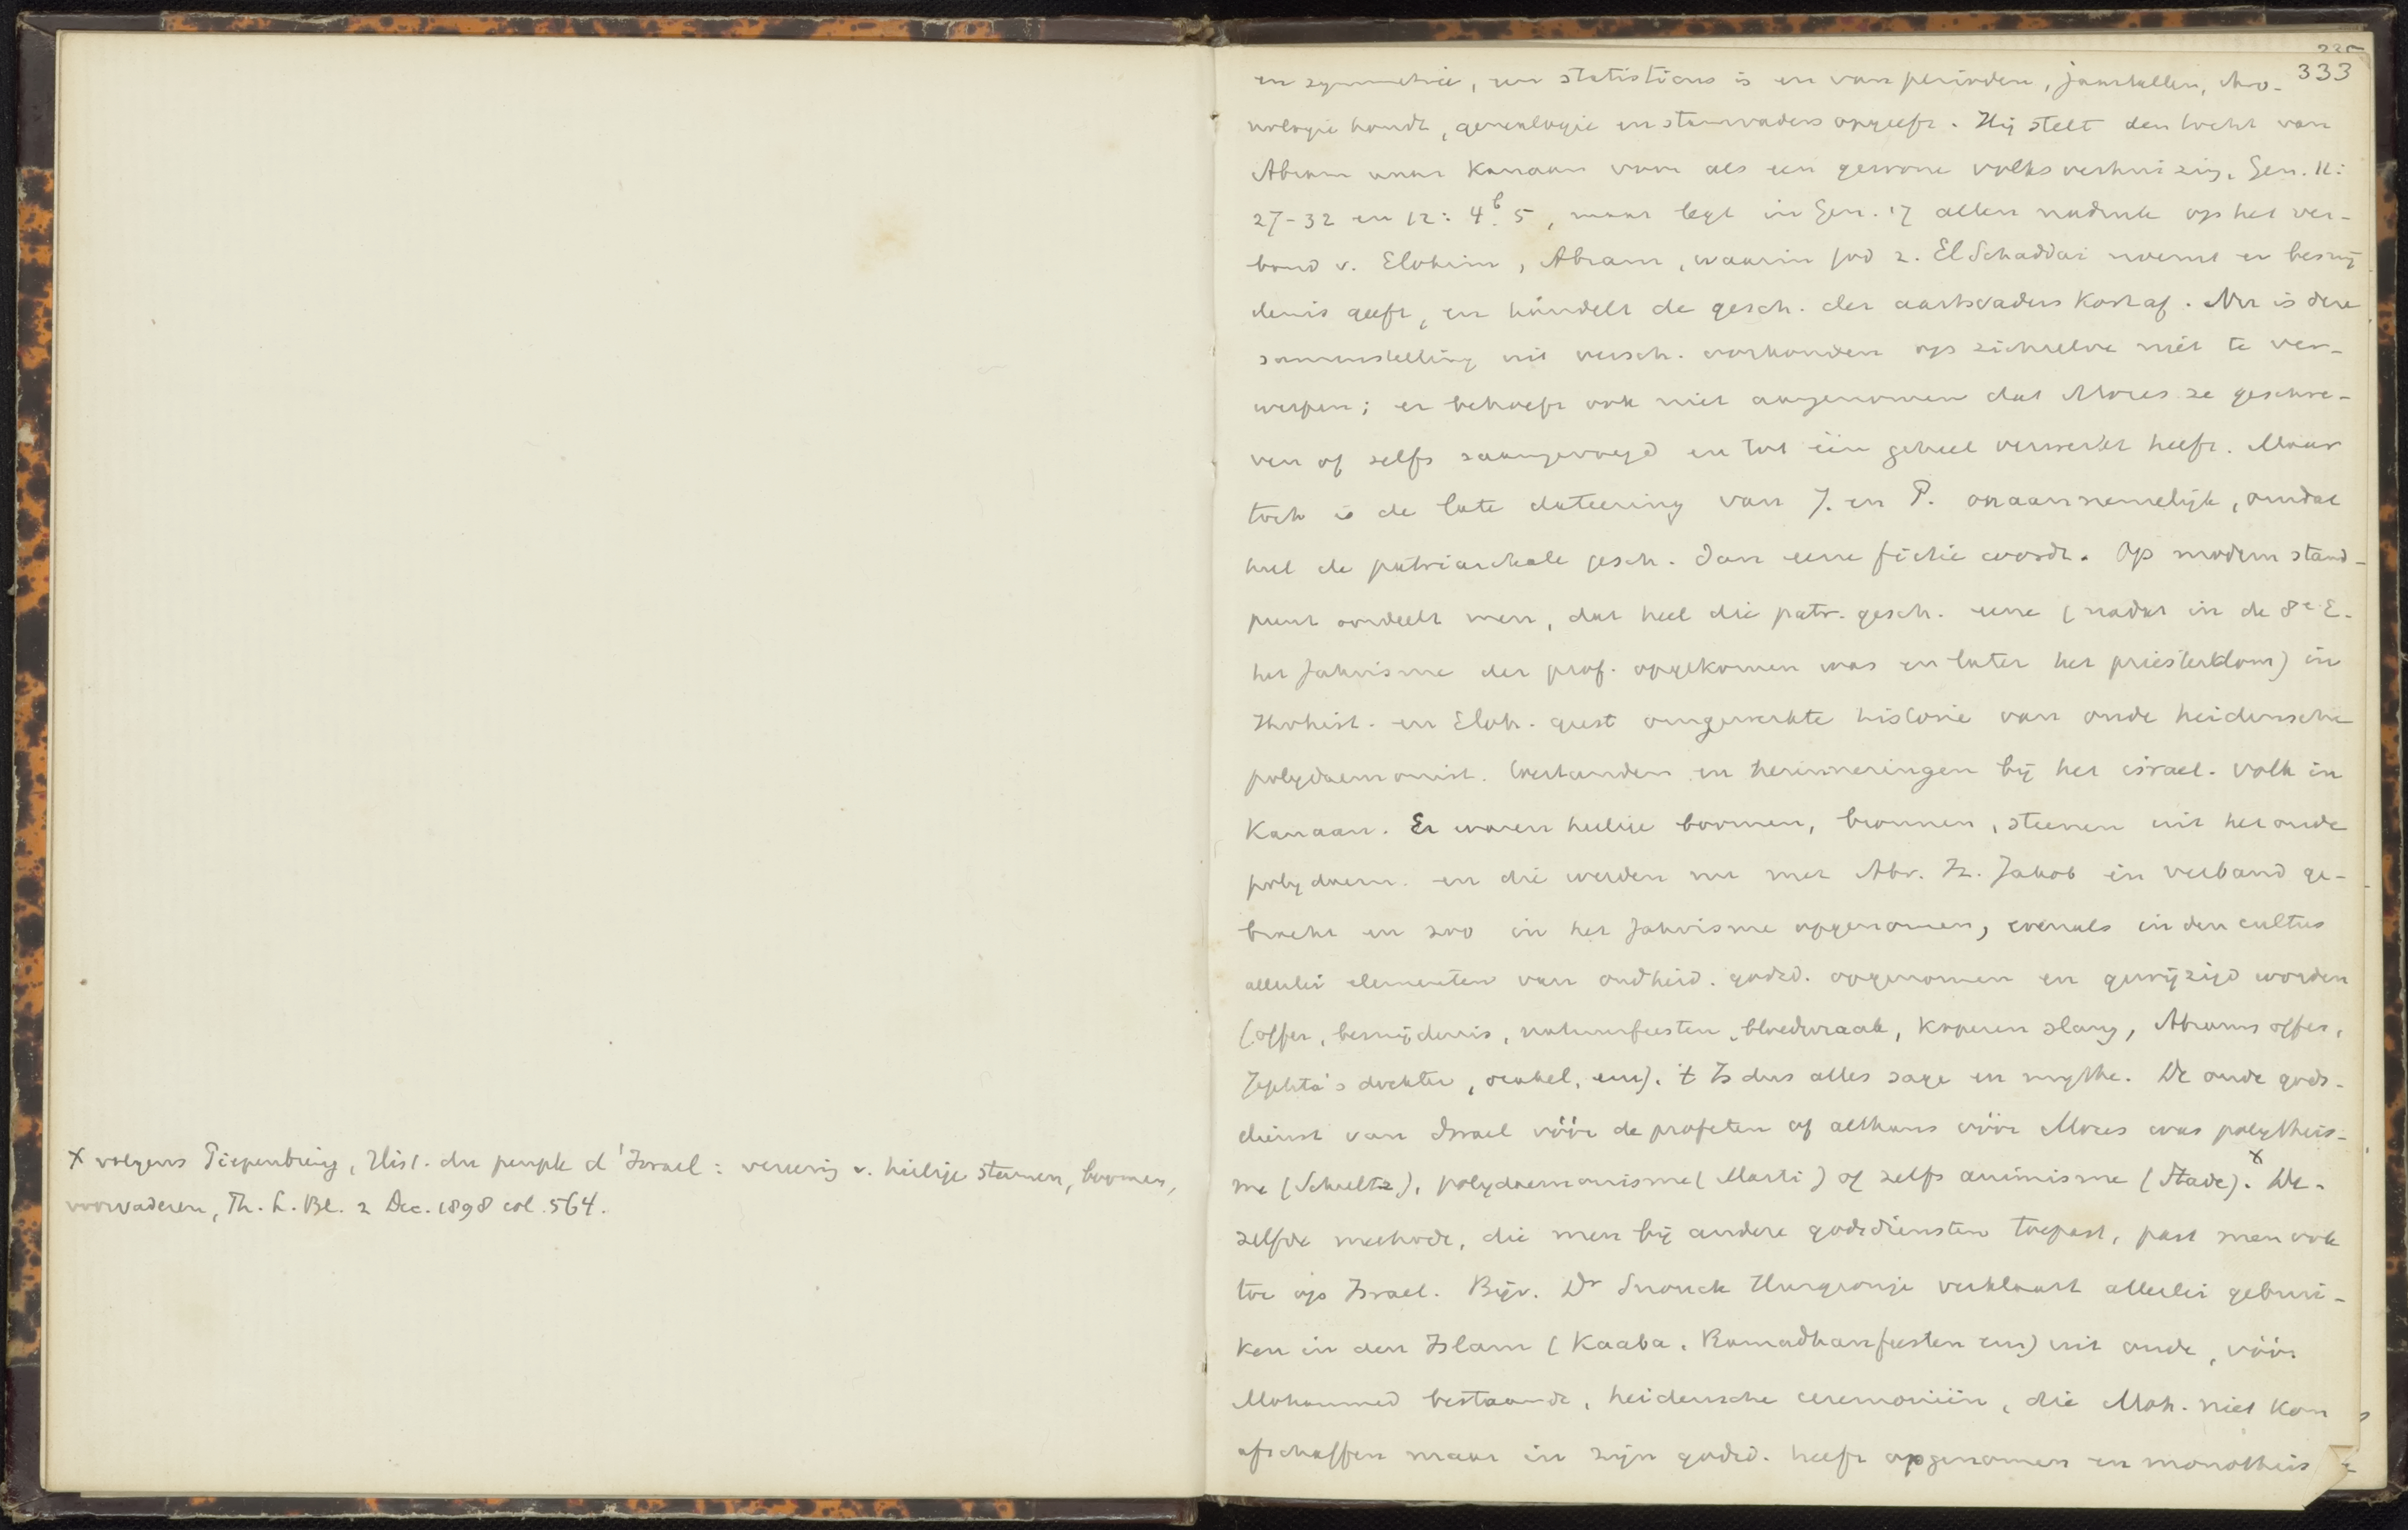 x volgens Piepenbring, Hist. du peuple d'Israel: vereerig v. heilige steenen, boomen,
voorvaderen, Th. L. Bl. 2 Dec. 1898 col. 564.
333
en symmetrie, een statisticus is en van perioden, jaartallen, chro-
nologie houdt, genealogie en stamvaders opgeeft. Hij stelt den tocht van
Abram naar Kanaan voor als een gewone volksverhuizing, Gen. 11:
27-32 en 12: 4b. 5, maar legt in Gen. 17 allen nadruk op het ver-
bond v. Elohim, Abram, waarin God z. El Schaddai noemt en besnij
denis geeft, en handelt de gesch. der aartsvaders kort af. Nu is deze
samenstelling uit versch. oorkonden op zichzelve niet te ver-
werpen; er behoeft ook niet aangenomen dat Mozes ze geschre-
ven of zelfs saamgevoegd en tot één geheel verwerkt heeft. Maar
toch is de late dateering van J. en P. onaannemelijk, omdat
heel de patriarchale gesch. dan eene fictie wordt. Op modern stand-
punt oordeelt men, dat heel die patr. gesch. eene (nadat in de 8e E.
het Jahvisme der prof. opgekomen was en later het priesterdom) in
Jhvhist. en Eloh. geest omgewerkte historie van oude heidensche
polydaemonist. bestanden en herinneringen bij het israel. volk in
Kanaan. Er waren heilige boomen, bronnen, steenen uit het oude
polydaem. en die werden nu met Abr. Iz. Jakob in verband ge-
bracht en zoo in het Jahvisme opgenomen, evenals in den cultus
allerlei elementen van oudheid. godsd. opgenomen en gewijzigd worden
(offer, besnijdenis, natuurfeesten, bloedwraak, koperen slang, Abrams offer,
Jephta's dochter, orakel, enz). 't Is dus alles sage en mythe. De oude gods-
dienst van Israel vóór de profeten of althans vóór Mozes was polytheis-
me (Schultz), polydaemonisme (Marti) of zelfs animisme (Stade).x De-
zelfde methode, die men bij andere godsdiensten toepast, past men ook
toe op Israel. Bijv. Dr Snouck Hurgronje verklaart allerlei gebrui-
ken in den Islam (Kaaba, Ramadhanfeesten enz) uit oude, vóór
Mohammed bestaande, heidensche ceremoniën, die Moh. niet kon
afschaffen maar in zijn godsd. heeft opgenomen en monotheis